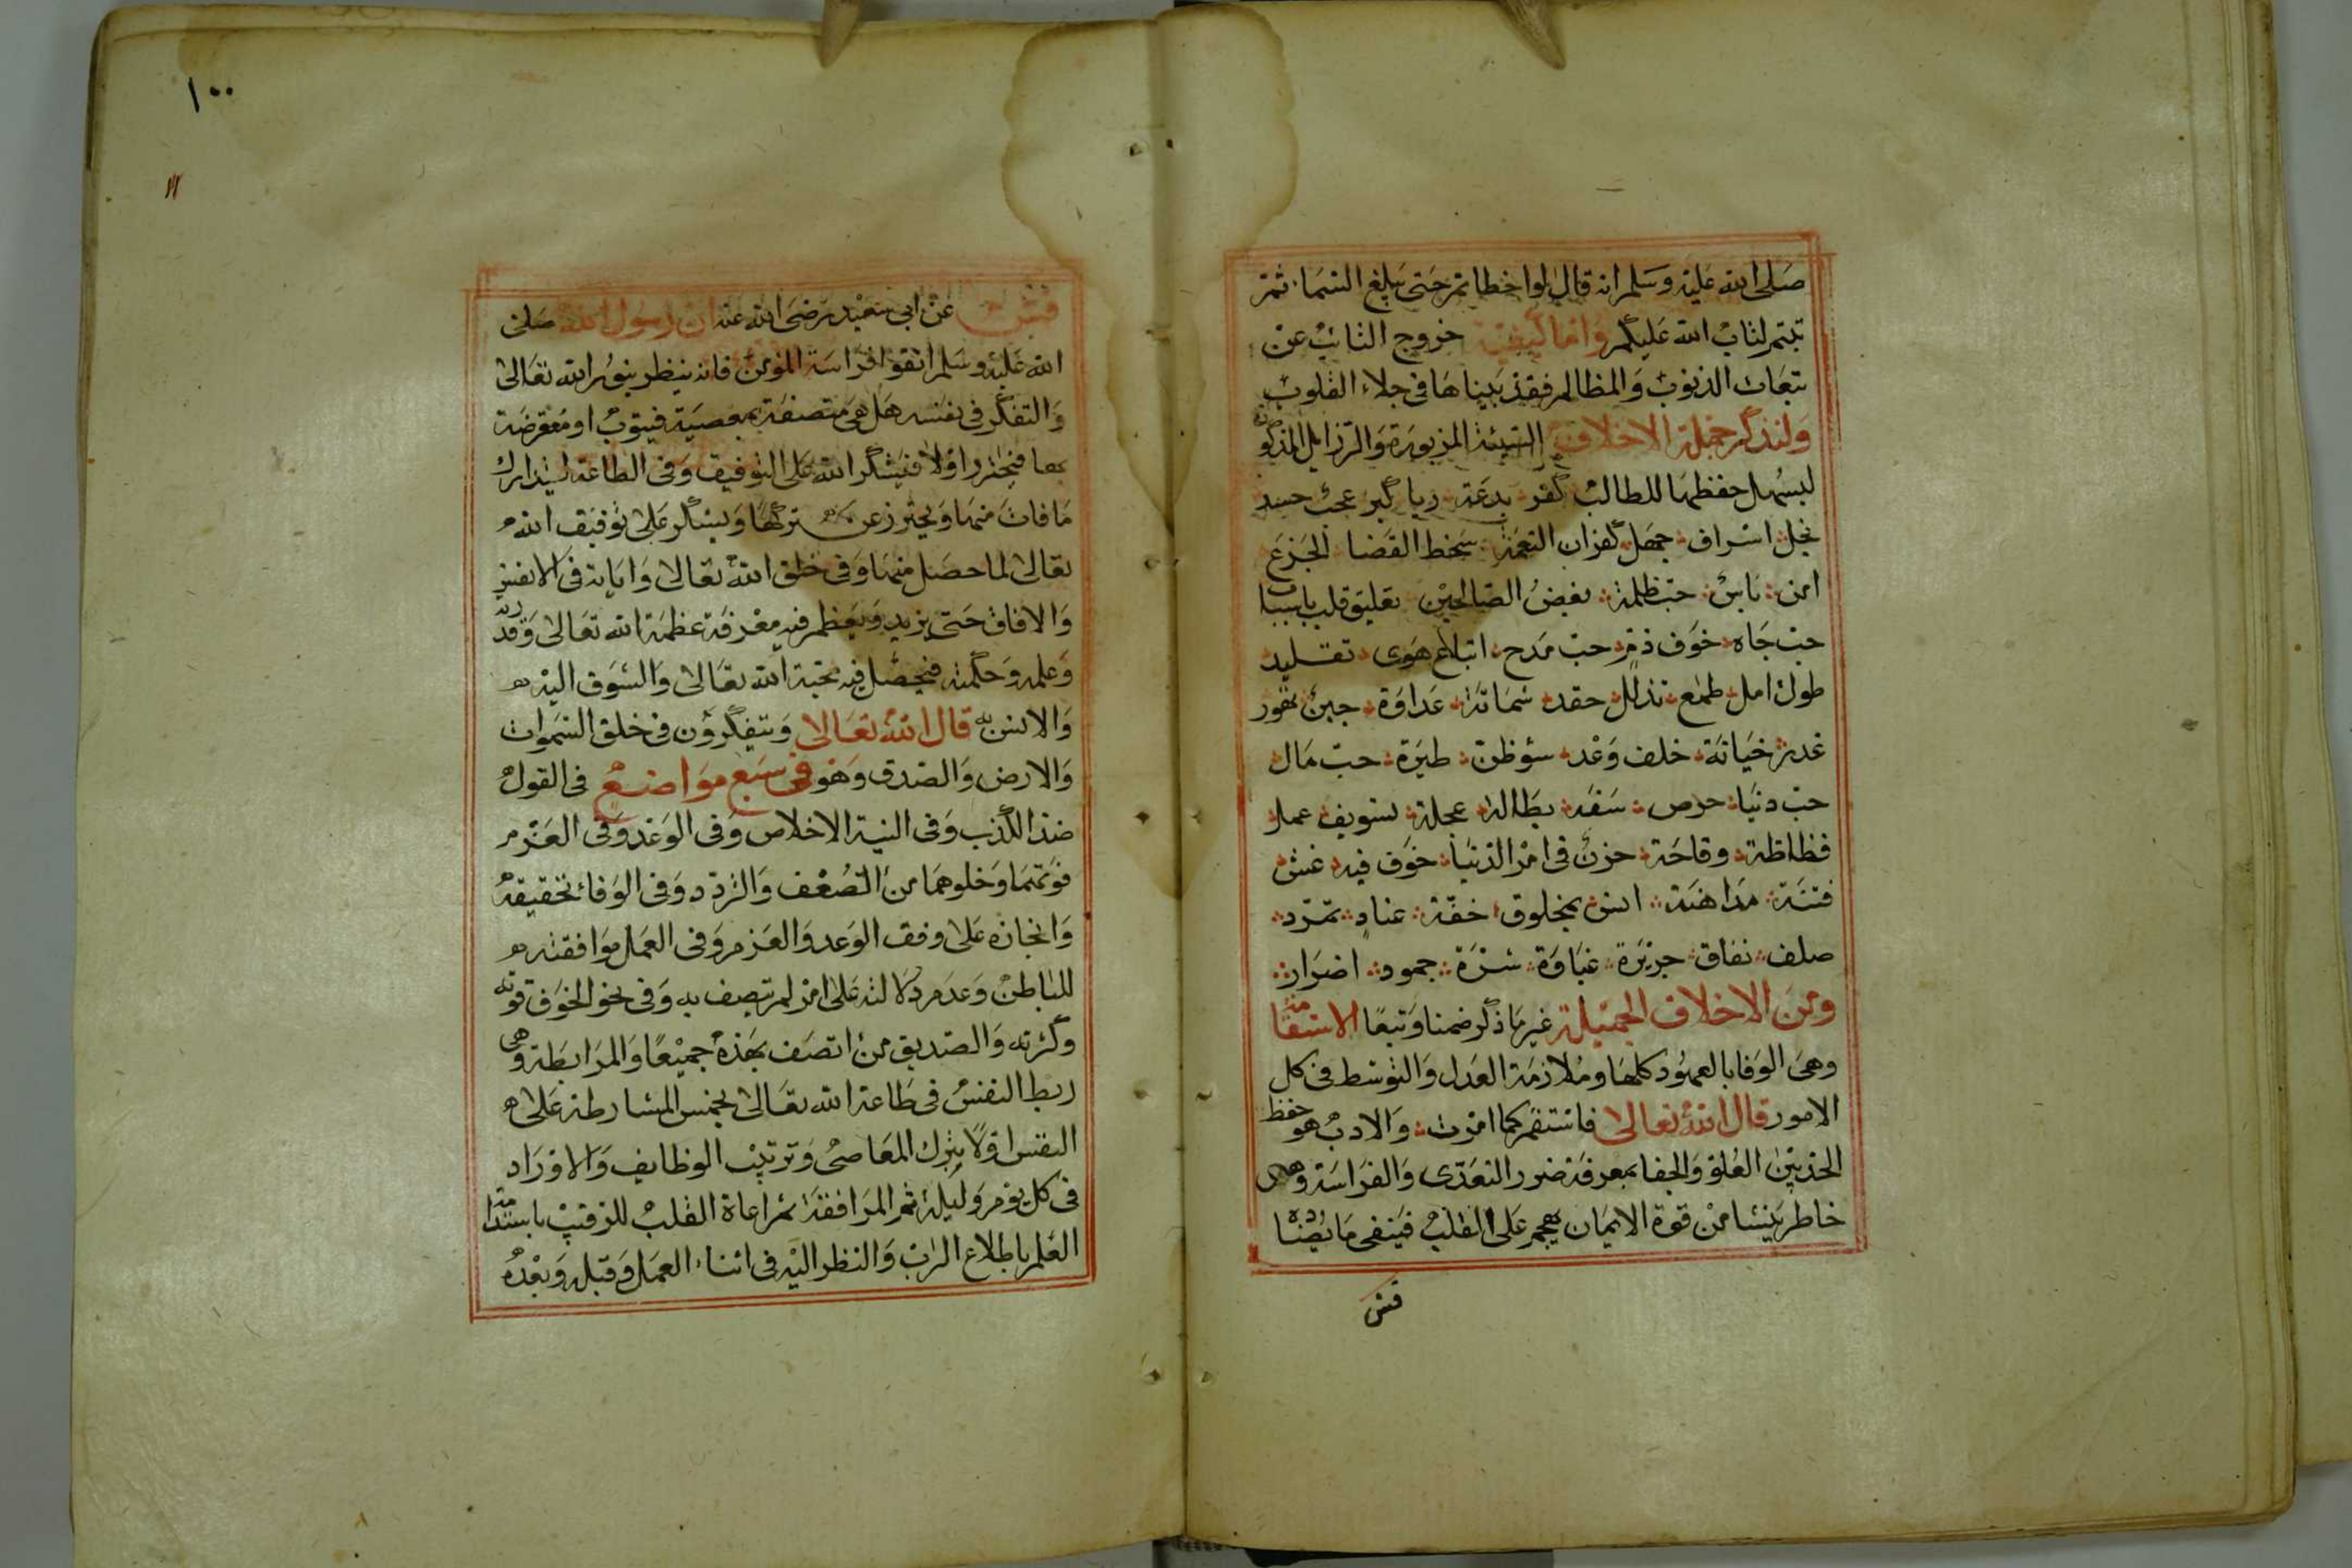 صلى الله عليه وسلم انه قال لو اخطاتم حتى يبلغ السماء ثم
تبتم لتاب الله عليكم واما كيفية خروج التائب عن
تبعات الذنوب والمظالم فقد بيناها فى جلاء القلوب
ولنذكر جملة الاخلاق السيئة المزبورة والرزايل المذكورة
ليسهل حفظها للطالب كفر بدعة ريا كبر عجب حسد
بخل اسراف جهل كفران النعمة سخط القضا الجزع
امن ياس حب ظلمة بغض الصالحين تعليق قلب باسباب
حب جاه خوف ذم حب مدح اتباع هوى تقليد
طول امل طمع تذلل حقد شماتة عداوة جبن تهور
غدر خيانة خلف وعد سؤظن طيرة حب مال
حب دنيا حرص سفه بطالة عجلة تسويف عمل
فظاظة وقاحة حزن فى امر الدنيا خوف فيه غش
فتنة مداهنة انس بمخلوق خفة عناد تمرد
صلف نفاق جربزة غباوة شره جمود اضرار
ومن الاخلاق الجميلة غير ما ذكر ضمنا وتبعا الاستقامة
وهى الوفا بالعهود كلها وملازمة العدل والتوسط فى كل
الامور قال الله تعالى فاستقم كما امرت والادب هو حفظ
الحد بين الغلو والجفا بمعرفة ضرر التعدى والفراسة وهى
خاطر ينشا من قوة الايمان يهجم على القلب فينفى ما يضاده
قش
١٠٠
قش عن ابى سعيد رضى الله عنه ان رسول الله صلى
الله عليه وسلم اتقوا فراسة المؤمن فانه ينظر بنور الله تعالى
والتفكر فى نفسه هل هى متصفة بمعصية فيتوب او معرضة
بها فيحذر اولا فيشكر الله على التوفيق وفى الطاعة ليتدارك
ما فات منها ويحترز عن تركها ويشكر على توفيق الله
تعالى لما حصل منها وفى خلق الله تعالى واياته فى الانفس
والافاق حتى يزيد ويعظم فيه معرفة عظمة الله تعالى وقدرته
وعلمه وحكمته فيحصل فيه محبة الله تعالى والشوق اليه
والانس به قال الله تعالى ويتفكرون فى خلق السموات
والارض والصدق وهو فى سبع مواضع فى القول
ضد الكذب وفى النية الاخلاص وفى الوعد وفى العزم
قوتهما وخلوهما من الضعف والتردد وفى الوفاء تحقيقه
وانجازه على وفق الوعد والعزم وفى العمل موافقته
للباطن وعدم دلالته على امر لم يتصف به وفى نحو الخوف قوته
وكثرته والصديق من اتصف بهذه جميعا والمرابطة وهى
ربط النفس فى طاعة الله تعالى بخمس المشارطة على
النفس اولا بترك المعاصى وترتيب الوظايف والاوراد
فى كل يوم وليلة ثم المراقبة بمراعاة القلب للرقيب باستدامة
العلم باطلاع الرب والنظر اليه فى اثناء العمل وقبله وبعده